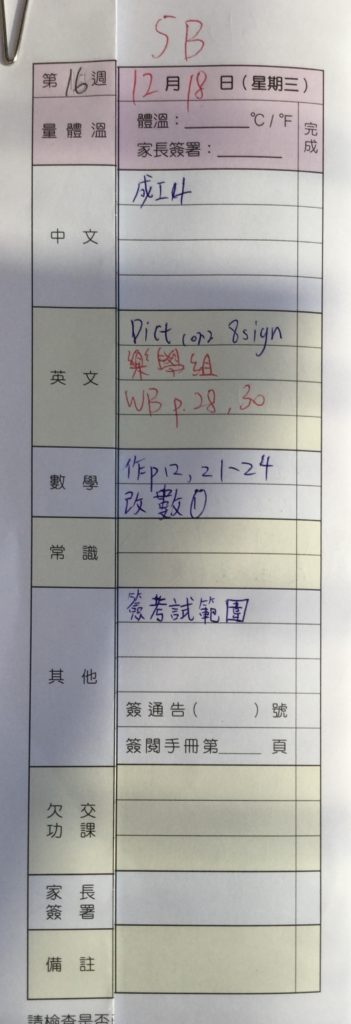 5B
第16週 12月18日(星期三)
量體溫 體溫：______℃/℉ 完成
家長簽署：______
中文 成工4
英文 Dict corr 8sign
樂學組
WB p.28, 30
數學 作p12, 21~24
改數①
常識
其他 簽考試範圍
簽通告( )號
簽閱手冊第____頁
欠交功課
家長簽署
備註
請檢查是否